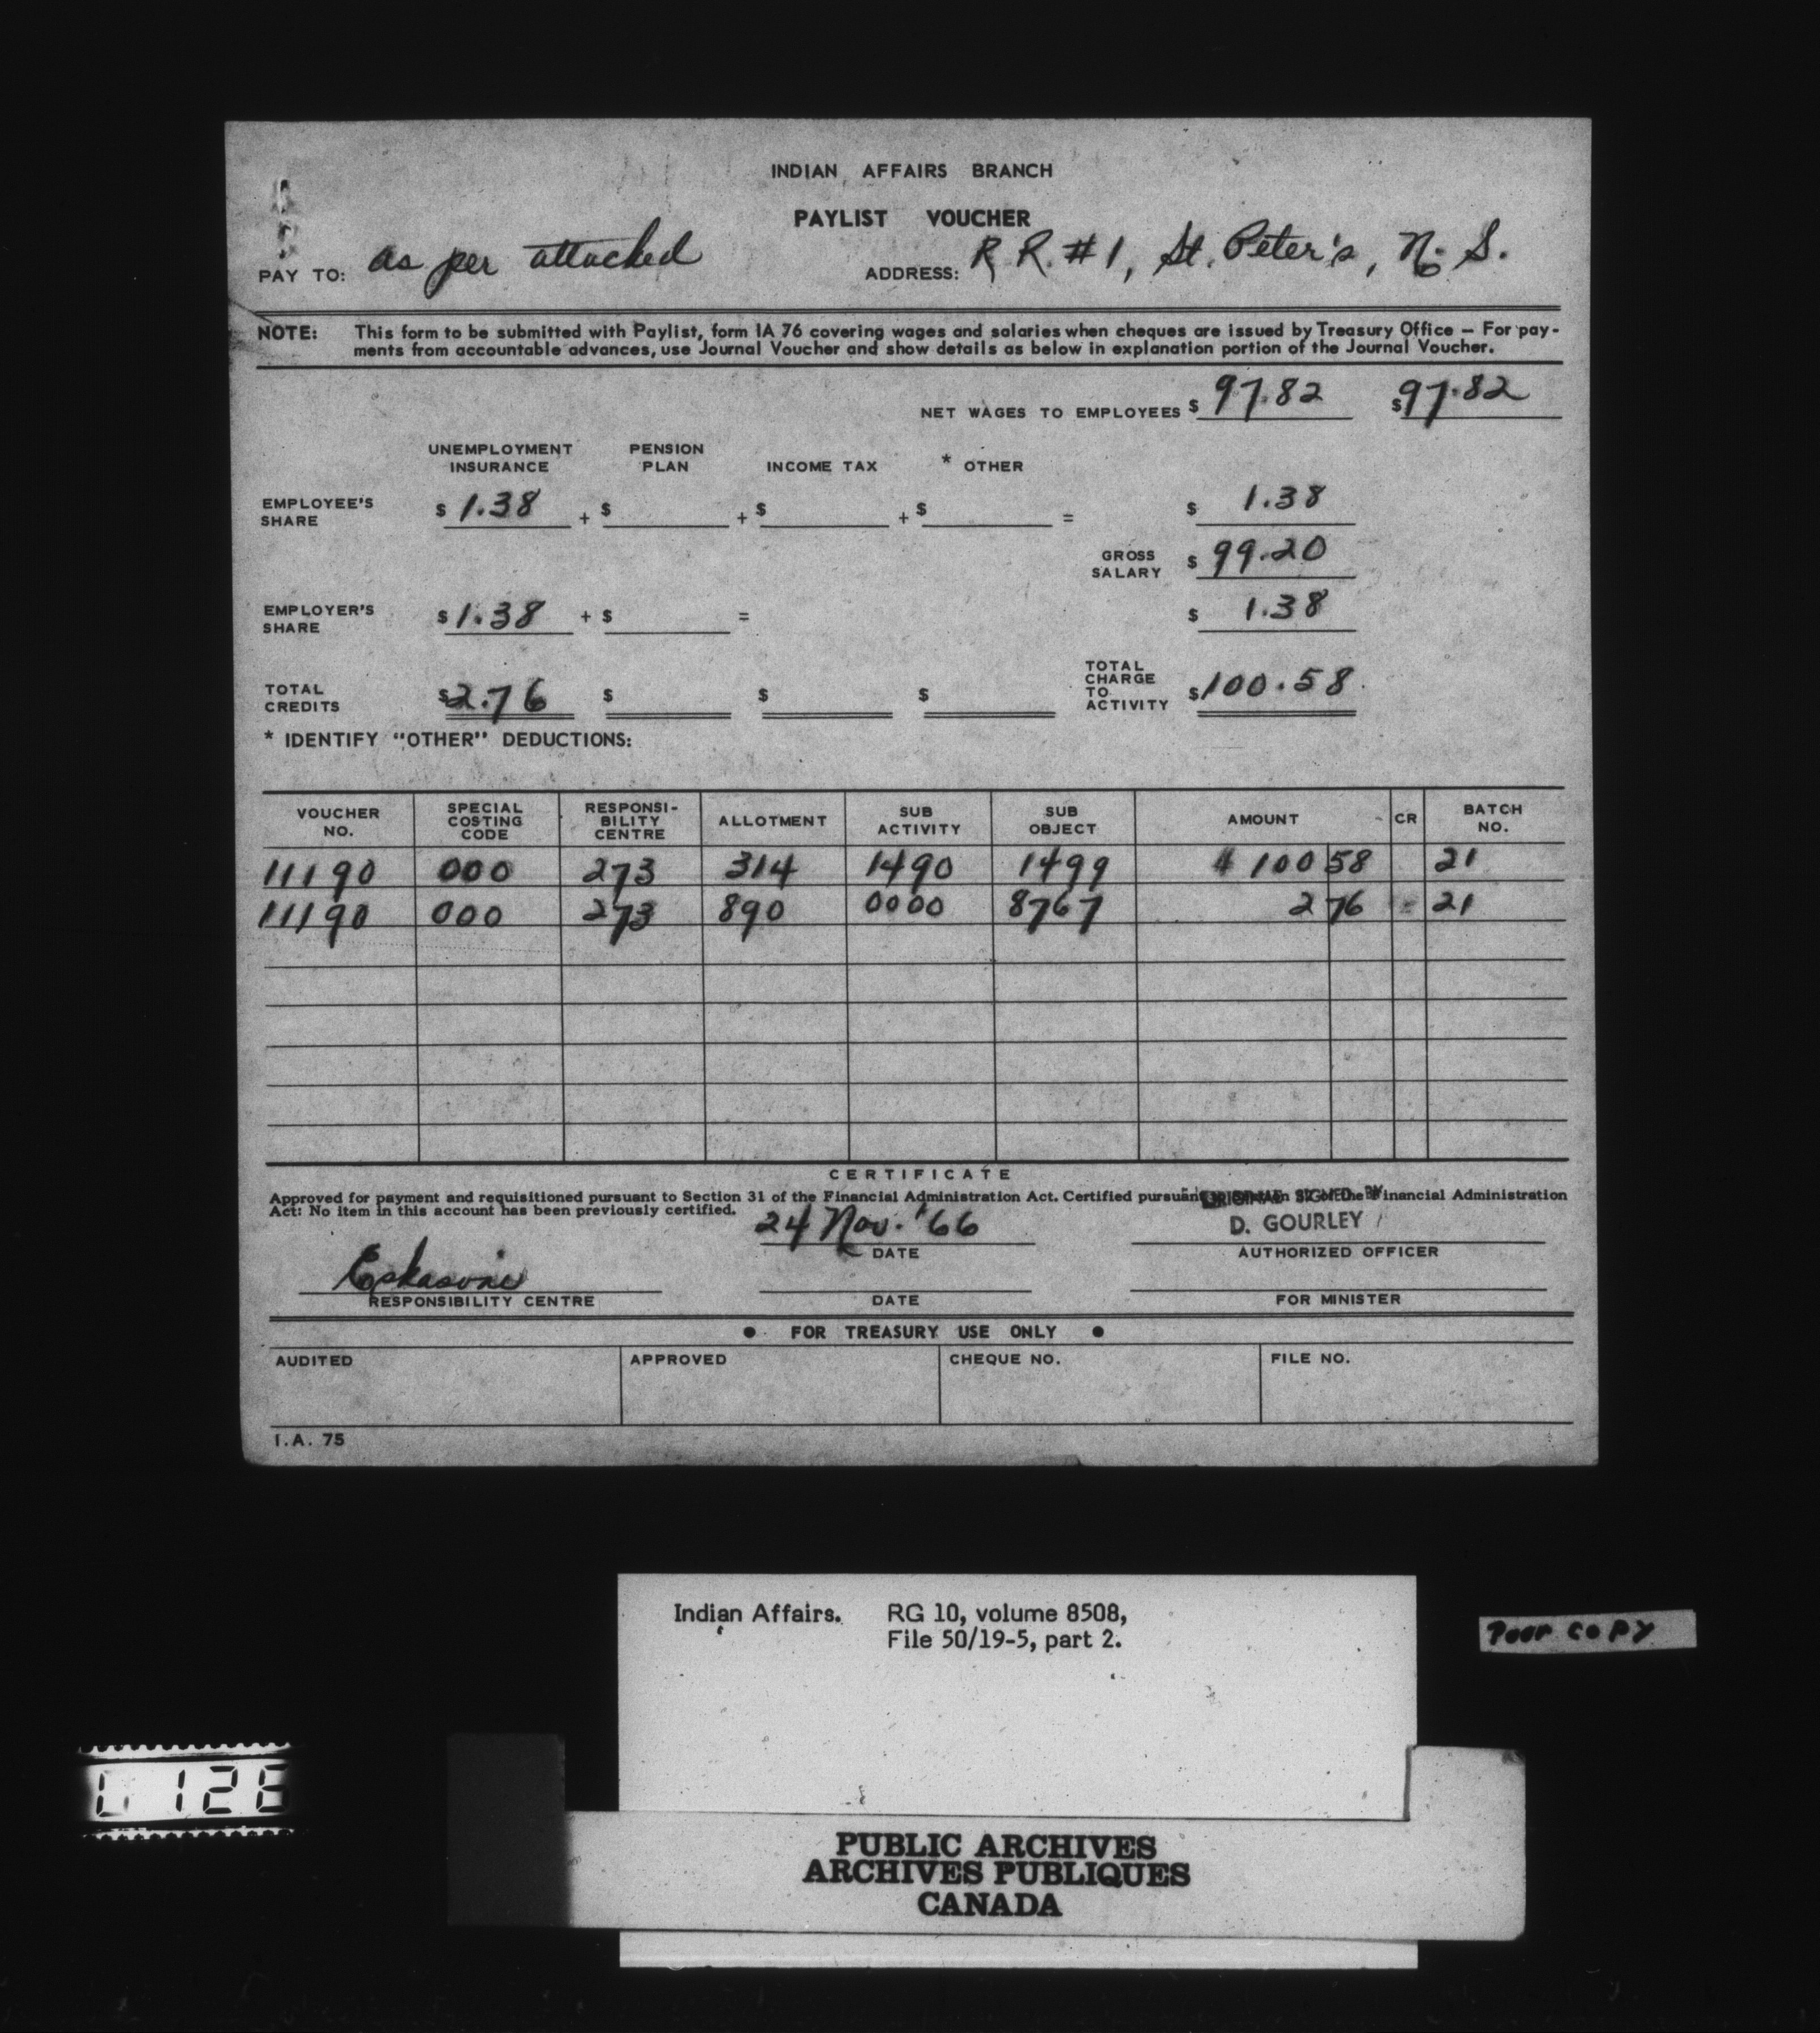 INDIAN AFFAIRS BRANCH
PAYLIST VOUCHER
PAY TO: as per attached ADDRESS: R R. #1, St. Peter's, N. S.
NOTE: This form to be submitted with Paylist, form IA 76 covering wages and salaries when cheques are issued by Treasury Office — For pay-
ments from accountable advances, use Journal Voucher and show details as below in explanation portion of the Journal Voucher.
NET WAGES TO EMPLOYEES $ 97.82 $ 97.82
UNEMPLOYMENT INSURANCE PENSION PLAN INCOME TAX * OTHER
EMPLOYEE'S SHARE $ 1.38 + $ + $ + $ = $ 1.38
GROSS SALARY $ 99.20
EMPLOYER'S SHARE $ 1.38 + $ = $ 1.38
TOTAL CREDITS $ 2.76 $ $ $ TOTAL CHARGE TO ACTIVITY $ 100.58
* IDENTIFY "OTHER" DEDUCTIONS:
VOUCHER NO. SPECIAL COSTING CODE RESPONSI-BILITY CENTRE ALLOTMENT SUB ACTIVITY SUB OBJECT AMOUNT CR BATCH NO.
11190 000 273 314 1490 1499 $ 100 58 21
11190 000 273 890 0000 8767 2 76 - 21
CERTIFICATE
Approved for payment and requisitioned pursuant to Section 31 of the Financial Administration Act. Certified pursuant ORIGINAL SIGNED BY Financial Administration
Act: No item in this account has been previously certified.
24 Nov. '66 D. GOURLEY
DATE AUTHORIZED OFFICER
Eskasoni
RESPONSIBILITY CENTRE DATE FOR MINISTER
• FOR TREASURY USE ONLY •
AUDITED APPROVED CHEQUE NO. FILE NO.
I.A. 75
Indian Affairs. RG 10, volume 8508,
File 50/19-5, part 2.
Poor copy
126
PUBLIC ARCHIVES
ARCHIVES PUBLIQUES
CANADA